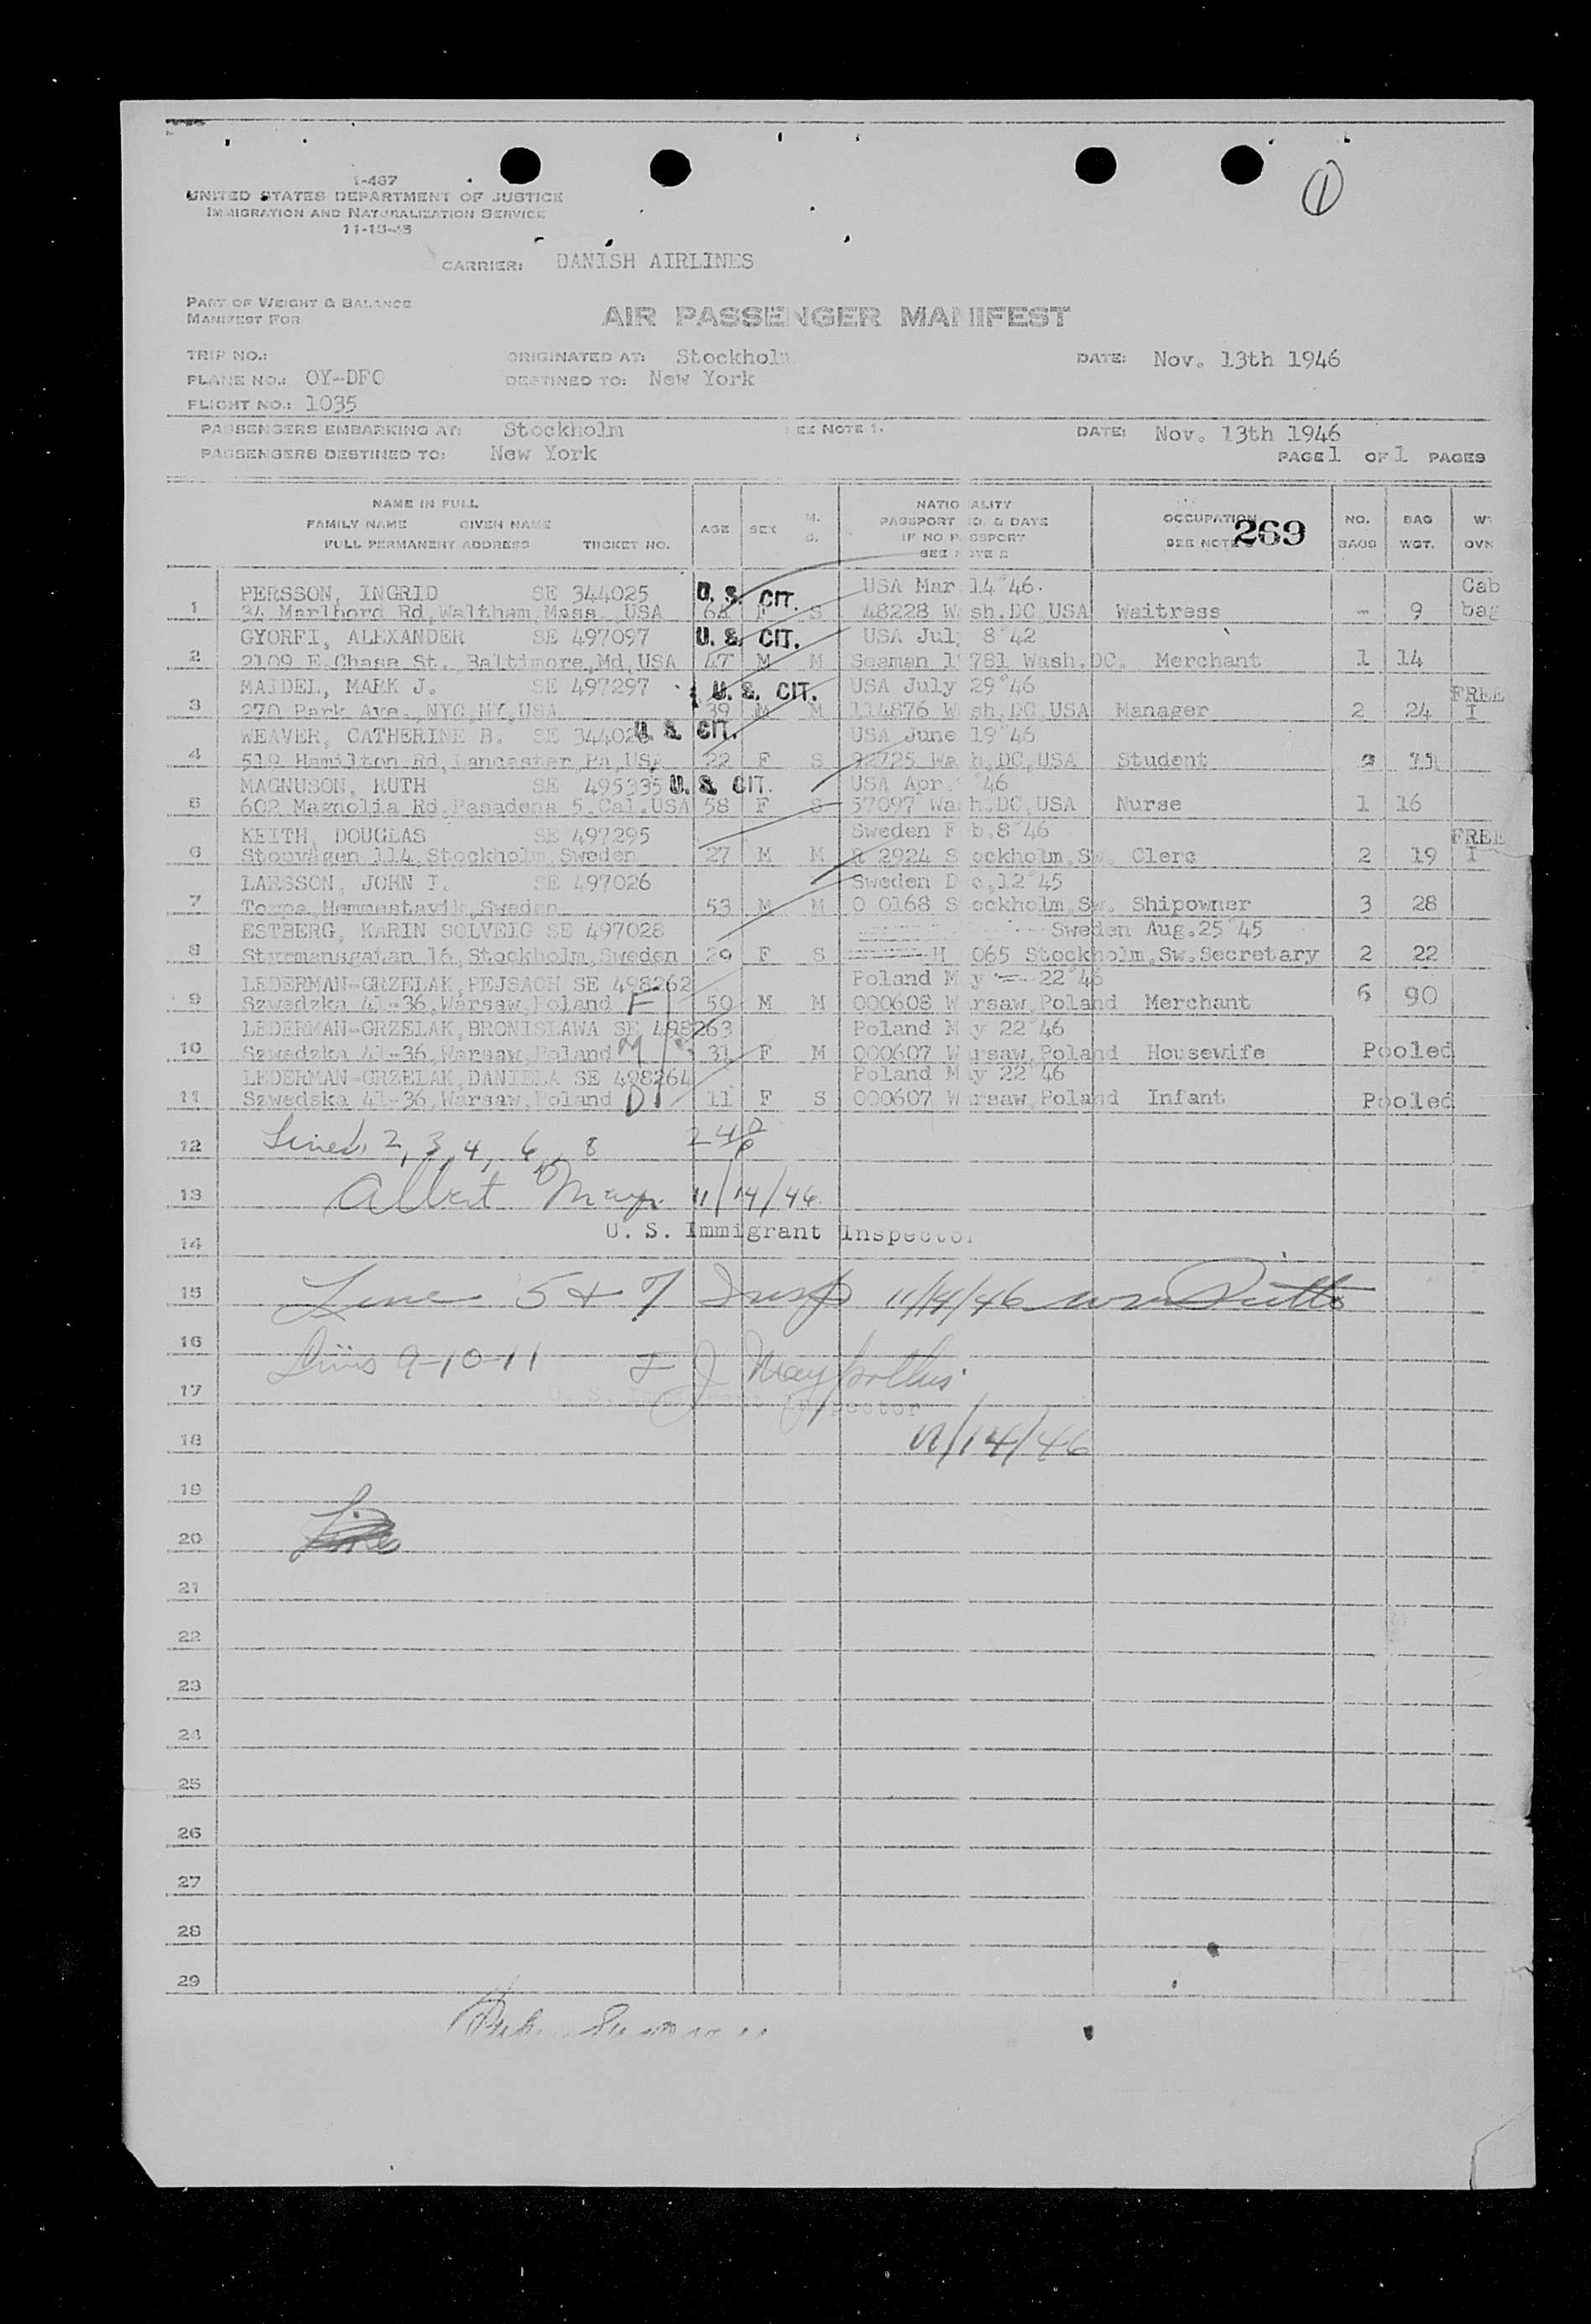 I-467
UNITED STATES DEPARTMENT OF JUSTICE
IMMIGRATION AND NATURALIZATION SERVICE
CARRIER: DANISH AIRLINES
PART OF WEIGHT & BALANCE
MANIFEST FOR
AIR PASSENGER MANIFEST
TRIP NO.: ORIGINATED AT: Stockholm DATE: Nov. 13th 1946
PLANE NO.: OY-DFO DESTINED TO: New York
FLIGHT NO.: 1035
PASSENGERS EMBARKING AT: Stockholm SEE NOTE 1. DATE: Nov. 13th 1946
PASSENGERS DESTINED TO: New York PAGE 1 OF 1 PAGES
NAME IN FULL NATIONALITY
FAMILY NAME GIVEN NAME AGE SEX M. PASSPORT NO. & DATE OCCUPATION 269 NO. BAG WT
FULL PERMANENT ADDRESS TICKET NO. S. IF NO PASSPORT SEE NOTE BAGS WGT. OVN
SEE NOTE 2
PERSSON, INGRID SE 344025 U. S. CIT. USA Mar 14°46. Cab
1 34 Marlbord Rd,Waltham,Mass.,USA 64 F S 48228 Wash.DC,USA Waitress - 9 bag
GYORFI, ALEXANDER SE 497097 U. S. CIT. USA July 8°42
2 2109 E.Chase St.,Baltimore,Md,USA 47 M M Seaman 781 Wash.DC. Merchant 1 14
MAIDEL, MARK J. SE 497297 U. S. CIT. USA July 29°46 FREE
3 270 Park Ave.,NYC,NY,USA 39 M M 114876 Wash,DC,USA Manager 2 24 I
WEAVER, CATHERINE B. SE 344026 U. S. CIT. USA June 19°46
4 519 Hamilton Rd,Lancaster,Pa,USA 22 F S 92725 Wash,DC,USA Student
MAGNUSON, RUTH SE 495335 U. S. CIT. USA Apr. °46
5 602 Magnolia Rd,Pasadena 5,Cal.USA 58 F S 57097 Wash.DC,USA Nurse 1 16
KEITH, DOUGLAS SE 497295 Sweden Feb.8°46 FREE
6 Stopvägen 114,Stockholm,Sweden 27 M M R 2924 Stockholm,Sw. Clerc 2 19 I
LARSSON, JOHN I. SE 497026 Sweden Dec,12°45
7 Torpa,Hemmestavik,Sweden 53 M M O 0168 Stockholm,Sw. Shipowner 3 28
ESTBERG, KARIN SOLVEIG SE 497028 Sweden Aug.25°45
8 Styrmansgatan 16,Stockholm,Sweden 29 F S H 065 Stockholm,Sw.Secretary 2 22
LEDERMAN-GRZELAK,PEJSACH SE 498262 Poland May 22°46
9 Szwedzka 41-36,Warsaw,Poland F 50 M M 000608 Warsaw,Poland Merchant 6 90
LEDERMAN-GRZELAK,BRONISLAWA SE 498263 Poland May 22°46
10 Szwedzka 41-36,Warsaw,Poland M 31 F M 000607 Warsaw,Poland Housewife Pooled
LEDERMAN-GRZELAK,DANIELA SE 498264 Poland May 22°46
11 Szwedska 41-36,Warsaw,Poland D 11 F S 000607 Warsaw,Poland Infant Pooled
12 Lines 2, 3, 4, 6, 8
13 Albert 11/14/46.
14 U. S. Immigrant Inspector
15 Line 5 & 7 Insp 11/14/46
16 Lines 9-10-11
17 U. S. Immigrant Inspector
18 11/14/46
19
20 Line
21
22
23
24
25
26
27
28
29